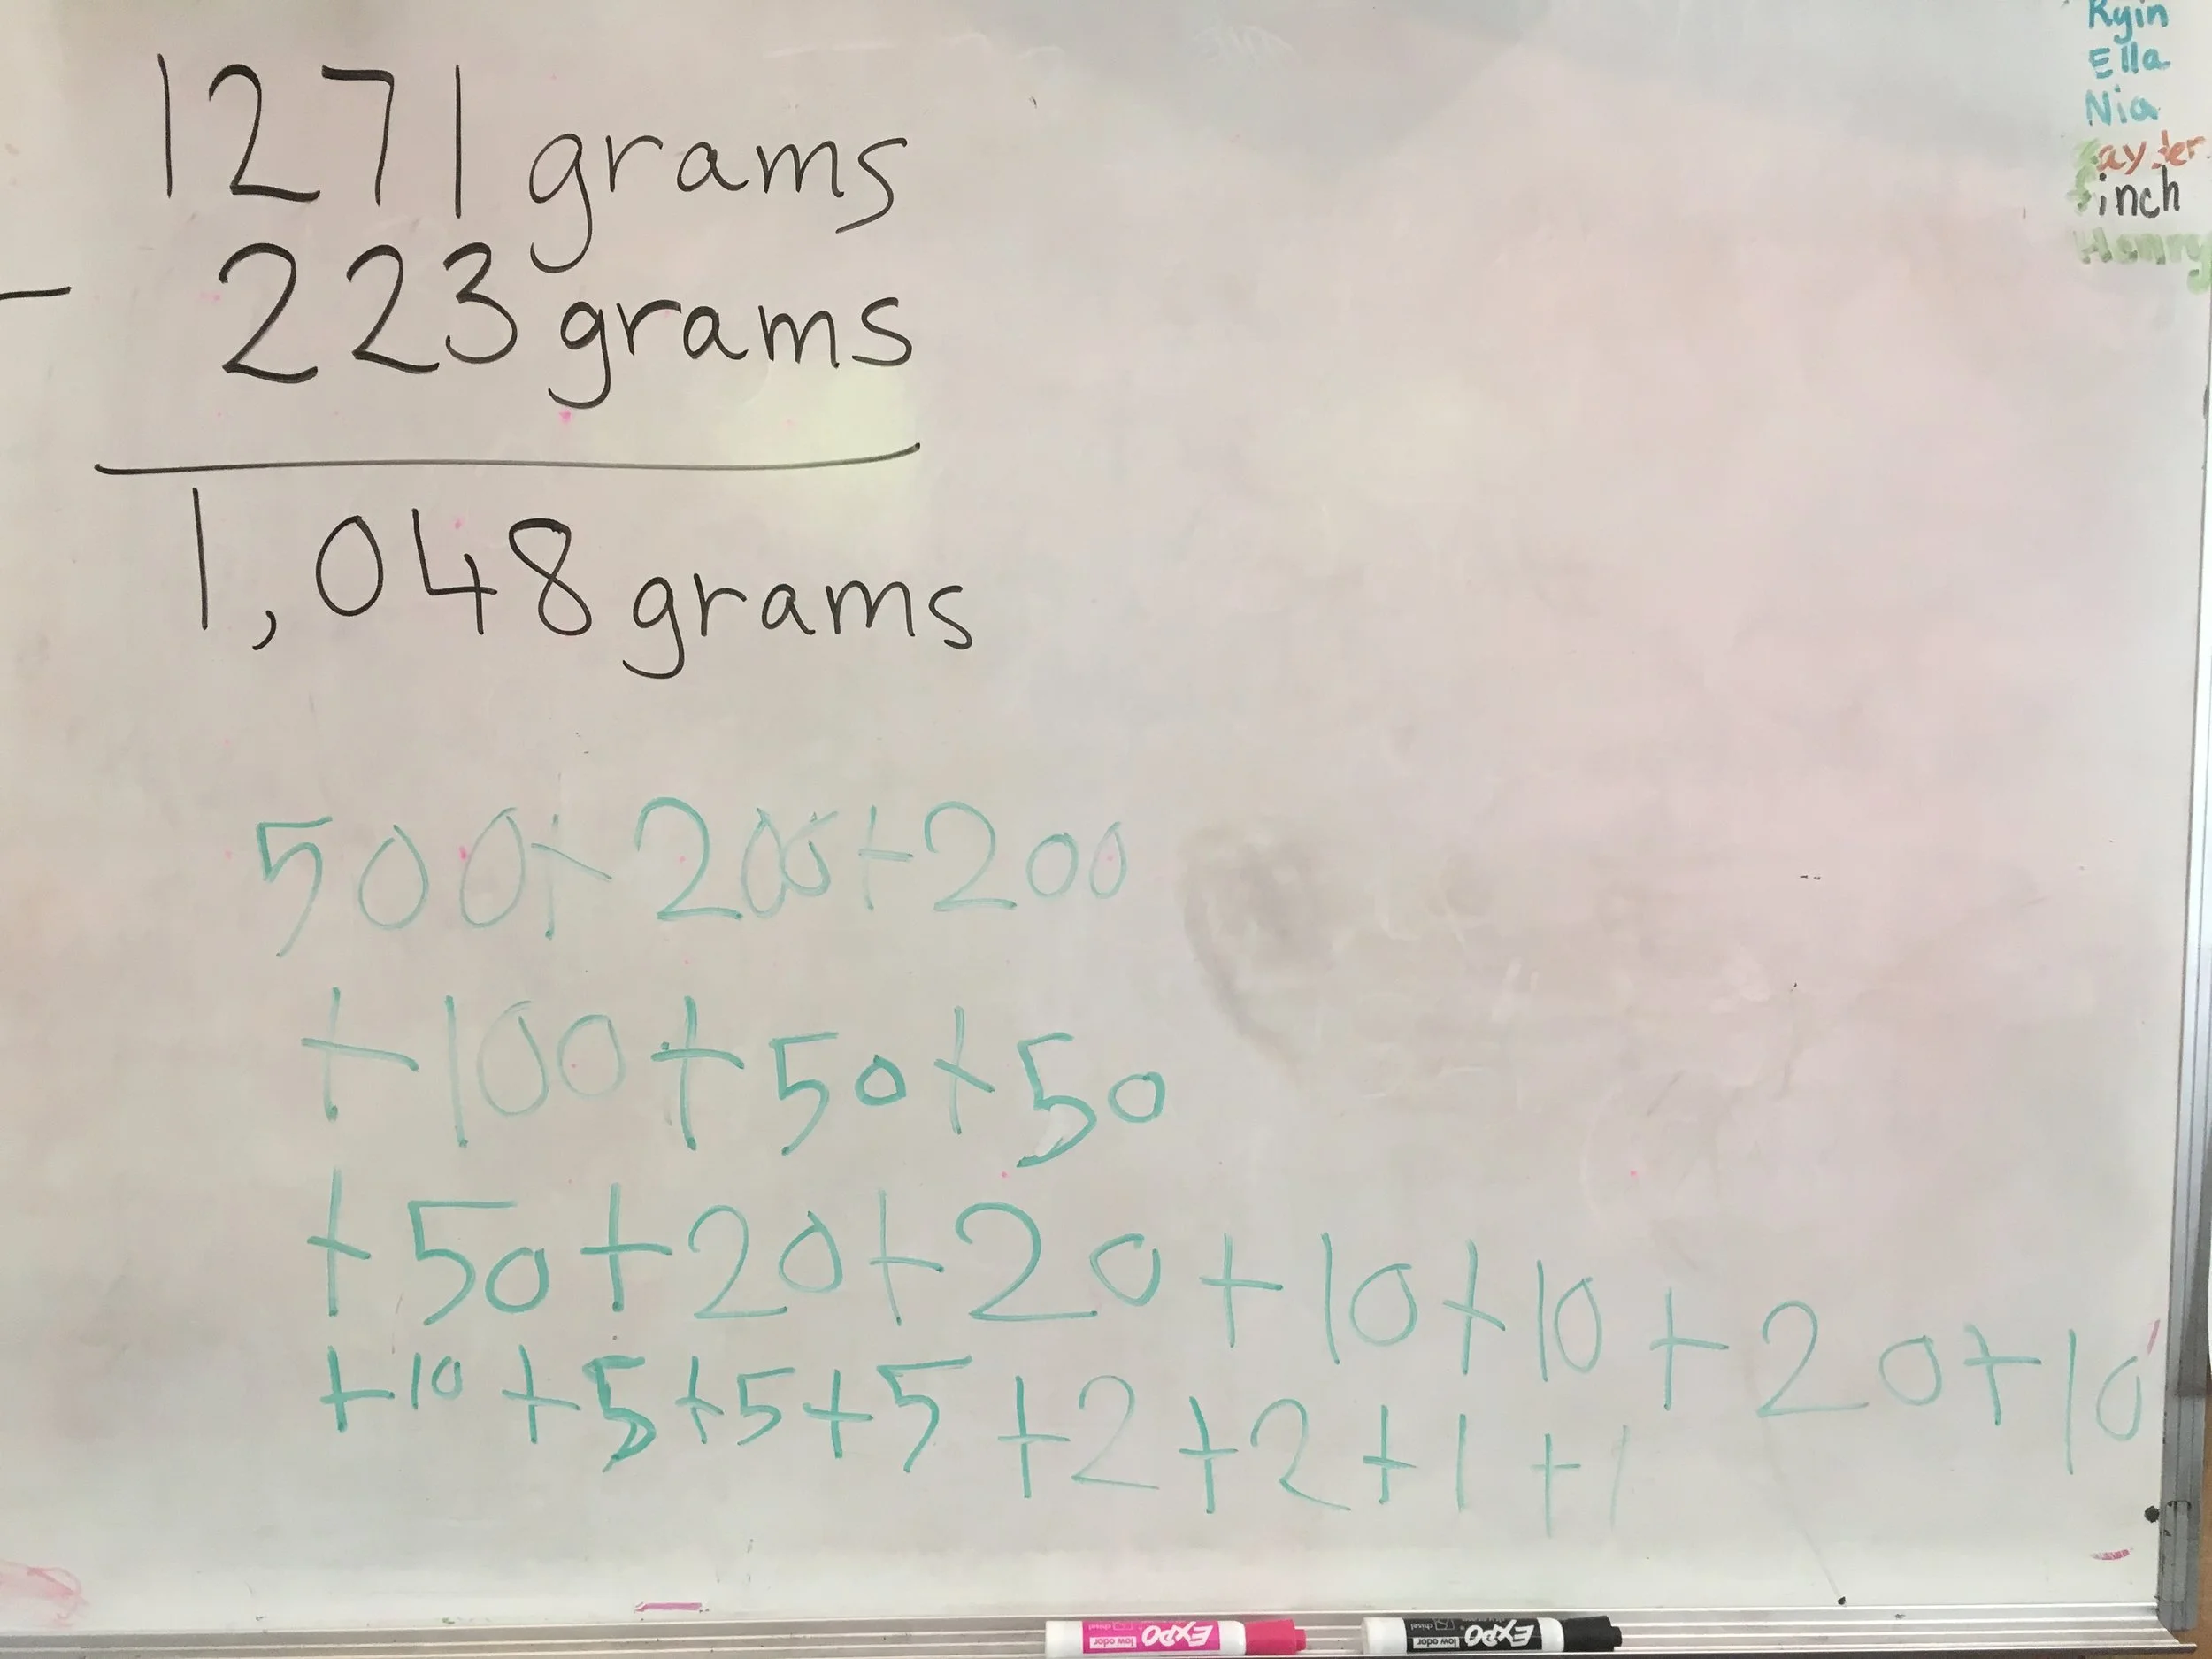 1271 grams
- 223 grams
1,048 grams
500+200+200
+100+50+50
+50+20+20+10+10+20+10
+10+5+5+5+2+2+1+1
Ryin
Ella
Nia
finch
Henry
EXPO
low odor
chisel
EXPO
low odor
chisel